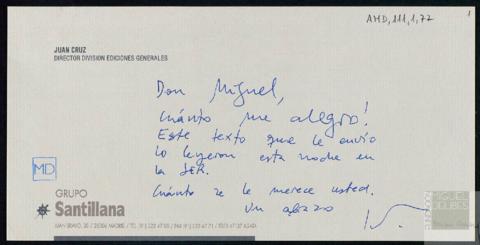 AMD, 111, 1, 72
1
JUAN CRUZ
DIRECTOR DIVISION EDICIONES GENERALES
Don Miguel,
Cuánto me alegro!
Este texto que le envío
lo leyeron esta noche en
la SER.
Cuánto se le merece usted.
Un abrazo
MD
GRUPO
Santillana
FUNDACIÓN
MIGUEL
DELIBES